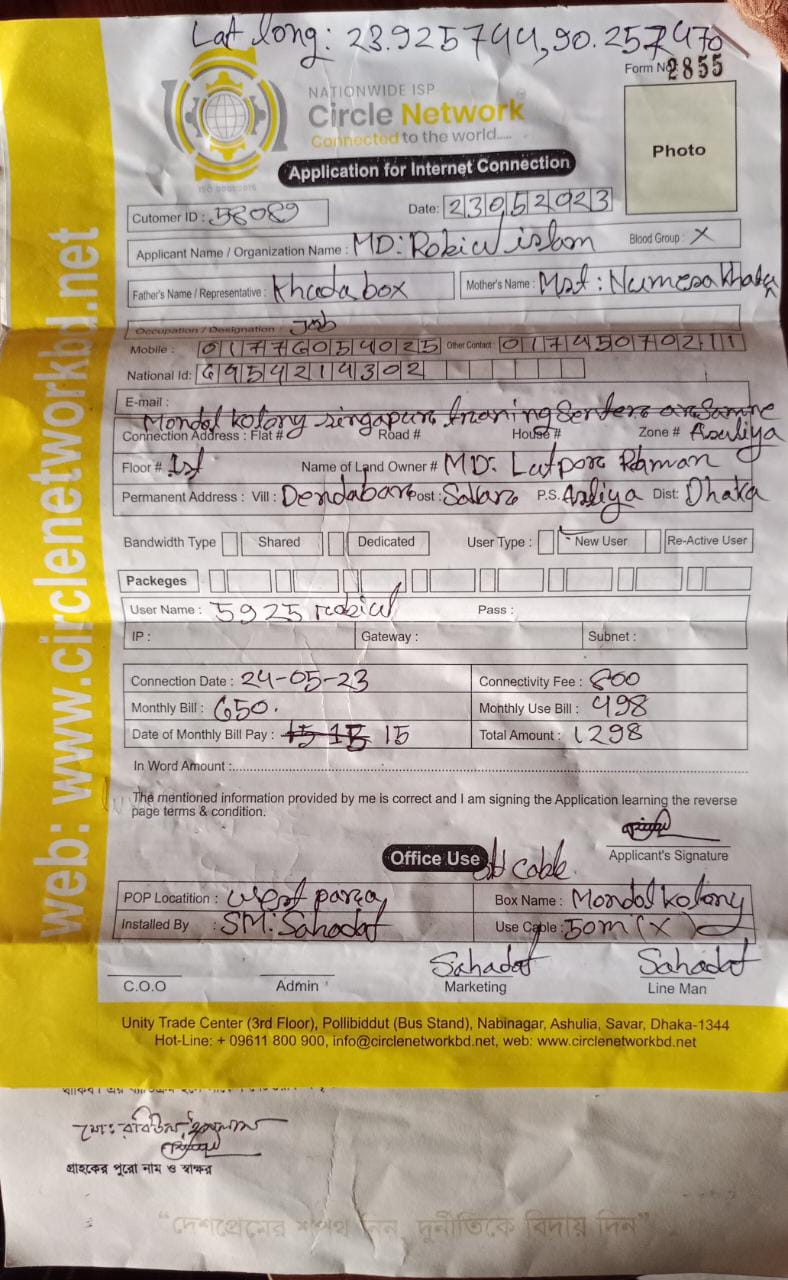 Lat long: 23.925744,90.257470
Form No 2855
NATIONWIDE ISP
Circle Network
Connected to the world.....
ISO 9001:2015
Application for Internet Connection
Photo
Cutomer ID : 58089
Date: 23052023
Applicant Name / Organization Name : MD: Robiul islam Blood Group : X
Father's Name / Representative : Khodabox Mother's Name : Mst: Numesa Khatu
Occupation / Designation : Job
Mobile : 01776054025 Other Contact : 01745070211
National Id: 6954214302
E-mail :
Mondol kolony singapur traning Senter
Connection Address : Flat # Road # House # Zone # Asuliya
Floor # 1st Name of Land Owner # MD. Lutpor Rhman
Permanent Address : Vill : Dendabar Post : Savar P.S. Asliya Dist: Dhaka
Bandwidth Type Shared Dedicated User Type : New User Re-Active User
Packeges
User Name : 5925 robiul Pass :
IP : Gateway : Subnet :
Connection Date : 24-05-23 Connectivity Fee : 800
Monthly Bill : 650. Monthly Use Bill : 498
Date of Monthly Bill Pay : 15 Total Amount : 1298
In Word Amount :
The mentioned information provided by me is correct and I am signing the Application learning the reverse
page terms & condition.
Applicant's Signature
Office Use cable.
POP Locatition : West para Box Name : Mondol kolony
Installed By : SM: Sahadat Use Cable : 50m (X)
Sahadat Sahadat
C.O.O Admin Marketing Line Man
Unity Trade Center (3rd Floor), Pollibiddut (Bus Stand), Nabinagar, Ashulia, Savar, Dhaka-1344
Hot-Line: + 09611 800 900, info@circlenetworkbd.net, web: www.circlenetworkbd.net
web: www.circlenetworkbd.net
মোঃ রবিউল ইসলাম
গ্রাহকের পুরো নাম ও স্বাক্ষর
“দেশপ্রেমের শপথ নিন, দুর্নীতিকে বিদায় দিন”